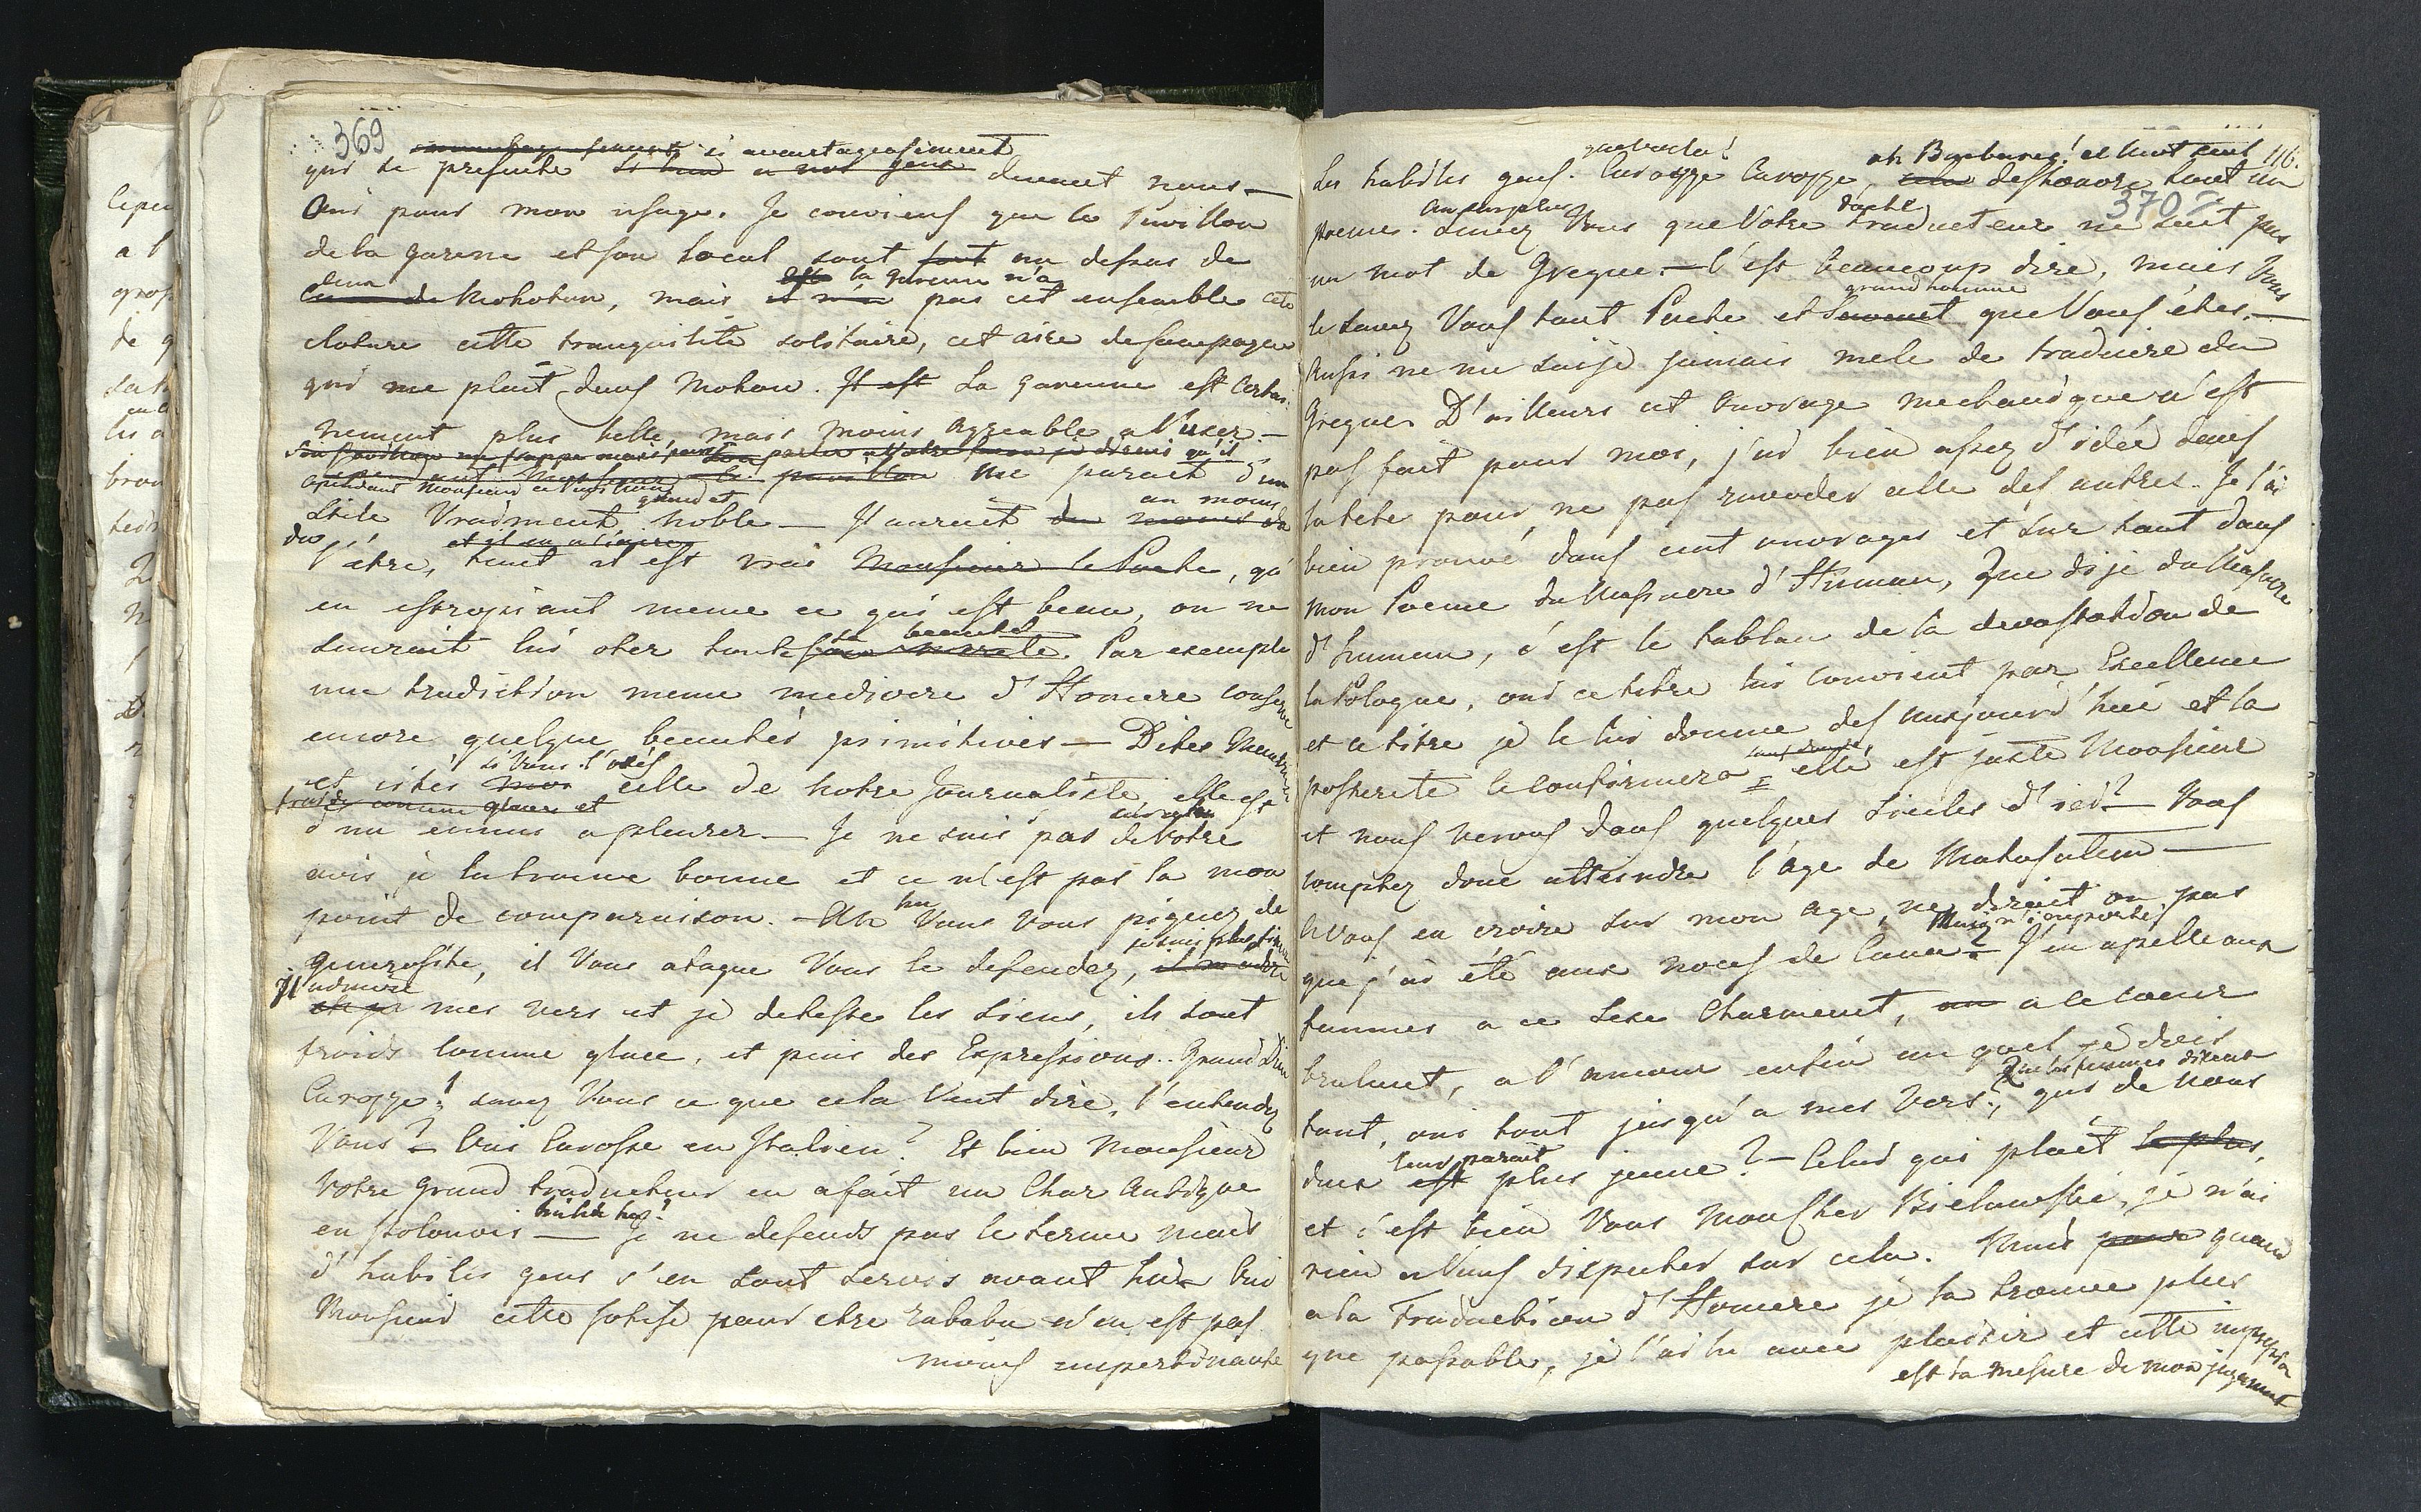 369
si avantageusement
qui se presente si bien a nos yeux devant nous —
Oui pour mon usage. Je conviens que le Pavillon
de la garene et son local sont tout au dessus de
ceux de Mokotow, mais la garenne n'a pas cet ensemble cete
cloture cette tranquilité solitaire, cet aire de campagne
qui me plait dans Mokow. Il est La garenne est certai
nement plus belle, mais moins agreable a l'user —
cependant Monsieur le pavillon me parait d'un
stile Vraiment grand et noble — Il aurait au moins
du l'etre, tant il est vrai Monsieur le Poete, qu'
en estropiant meme ce qui est beau, on ne
saurait lui oter toute sa beauté. Par exemple
une tradiction meme mediocre d'Homere conserve
encore quelque beautés primitives — Dites Monsieur
et citez si Vous l'osés celle de notre Journaliste elle est
froide comme glace et
d'un ennui a pleurer — Je ne suis pas de votre
avis je la trouve bonne et ce n'est pas la mon
point de comparaison. — Ah Vous Vous piquez de
generosité, il Vous ataque Vous le defendez,
Il admire mes vers et je deteste les siens, ils sont
froids comme glace, et puis des Expressions.. Grand Dieu
Carozze! savez Vous ce que cela Veut dire, l'entendez
Vous? — Oui Carosse en Italien? Et bien Monsieur
Votre grand traducteur en a fait un Char Antique
en polonois — Je ne defends pas le terme mais
d'habiles gens s'en sont servis avant lui — Oui
Monsieur cette sotise pour etre rababu n'en est pas
moins impertinante
116.
370
ah Barbares! et
Les habiles gens. Carozze Carozze, cela deshonore tout un
poeme. Au surplus savez Vous que Votre docte traducteur ne sait pas
un mot de Greque. — C'est beaucoup dire, mais Vous
grand homme
le savez Vous tout Poete et Savant que Vous êtes. —
Aussi ne me suije jamais mele de traduire du
Greque D'ailleurs cet ouvrage mechanique n'est
pas fait pour moi, j'ai bien assez d'idée dans
la tete pour ne pas ravoder celle des autres. Je l'ai
bien prouvé dans cent ouvrages et sur tout dans
mon Poeme du Massacre d'Human, Que dije du Massacre
d'human, c'est le tableau de la devastation de
la Pologne, oui ce titre lui convient par Excellence
et ce titre je le lui donne des aujourd'hui et la
posterité le confirmera — sans doute, elle est juste Monsieur
et nous verons dans quelques siecles d'ici? — Vous
comptez donc atteindre l'age de Matusalem —
A Vous en croire sur mon age, ne diroit on pas
que j'ai été aux noces de Cana? — Mais n'importe, J'en apelle aux
femmes a ce sexe Charmant, a le coeur
brulant, a l'amour enfin au quel je dois
tout, oui tout jusqu'a mes Vers. Que les femmes disent qui de nous
deux leur parait est plus jeune? — Celui qui plait le plus,
et c'est bien Vous Mon Cher Bielawski, je n'ai
rien a Vous disputer sur cela. Mais pour quand
a la Traduction d'Homere je la trouve plus
que passable, je l'ai lu avec plaisir et cette impression
est la mesure de mon jugement